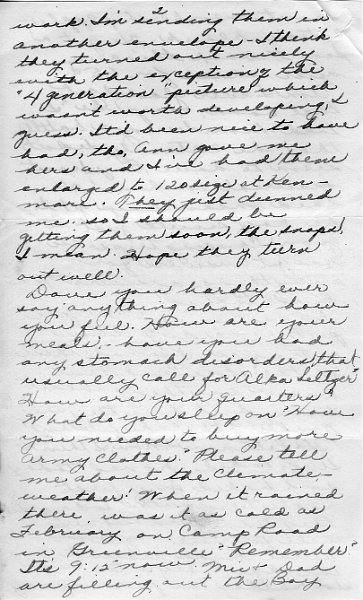 work. I'm sending them in
2
another envelope - I think
they turned out nicely
with the exception of the
"4 generation" picture which
wasn't worth developing, I
guess. It'd been nice to have
had, tho, Ann gave me
hers and I've had them
enlarged to 120 size at Ken-
more. They just dunned
me. so I should be
getting them soon, the snaps,
I mean. Hope they turn
out well.
Dave you hardly ever
say anything about how
you feel. How are your
meals, - have you had
any stomach disorders that
usually call for Alka Seltzer"
How are your quarters"
What do you sleep on" Have
you needed to buy more
army clothes" Please tell
me about the climate-
weather! When it rained
there was it as cold as
February on Camp Road
in Greenville" Remember"
It's 9:15 now Mic + Dad
are filling out the Bay